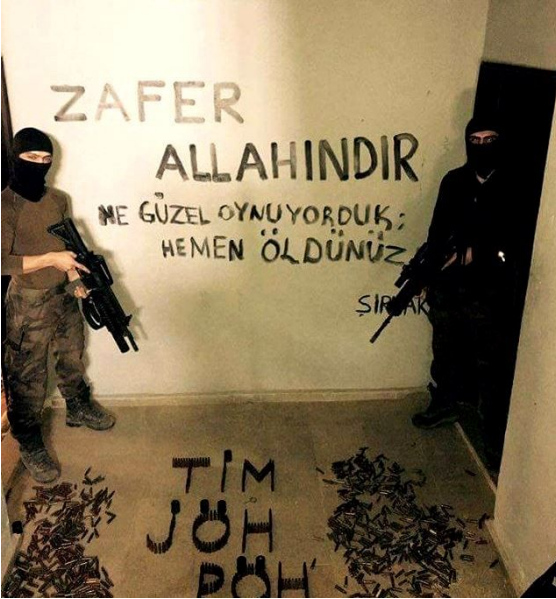 ZAFER
ALLAHINDIR
NE GÜZEL OYNUYORDUK;
HEMEN ÖLDÜNÜZ
ŞIRNAK
TİM
JÖH
PÖH